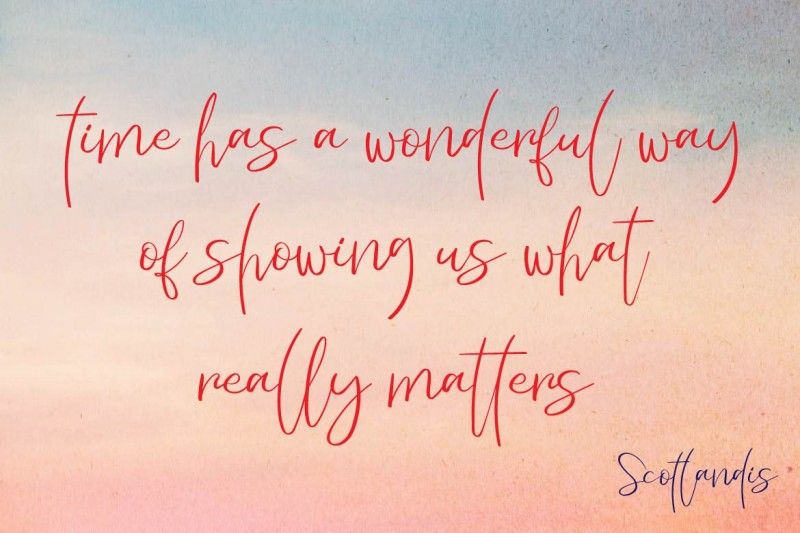 time has a wonderful way
of showing us what
really matters
Scotlandis